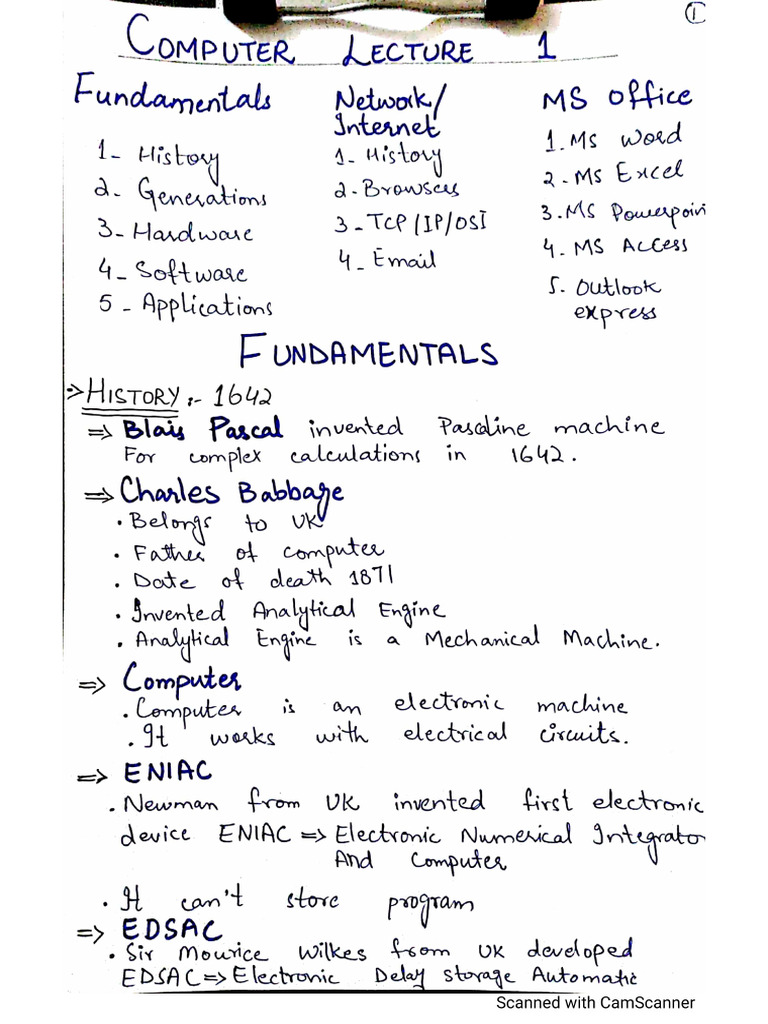 1
COMPUTER LECTURE 1
Fundamentals
1- History
2- Generations
3- Hardware
4- Software
5- Applications
Network/
Internet
1- History
2- Browsers
3- TCP/IP/OSI
4- Email
MS Office
1. MS Word
2- MS Excel
3. MS Powerpoin
4. MS Access
5. Outlook
express
FUNDAMENTALS
⇒ HISTORY :- 1642
⇒ Blais Pascal invented Pascline machine
For complex calculations in 1642.
⇒ Charles Babbage
• Belongs to UK
• Father of computer
• Date of death 1871
• Invented Analytical Engine
• Analytical Engine is a Mechanical Machine.
⇒ Computer
• Computer is an electronic machine
• It works with electrical circuits.
⇒ ENIAC
• Newman from UK invented first electronic
device ENIAC ⇒ Electronic Numerical Integrato
And Computer
• It can't store program
⇒ EDSAC
• Sir Mourice Wilkes from UK developed
EDSAC ⇒ Electronic Delay Storage Automatic
Scanned with CamScanner